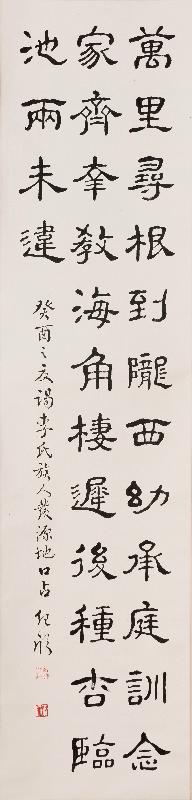 萬里尋根到隴西幼承庭訓念
家齊幸教海角棲遲後種杏臨
池兩未違
癸酉之夏謁李氏族人發源地口占